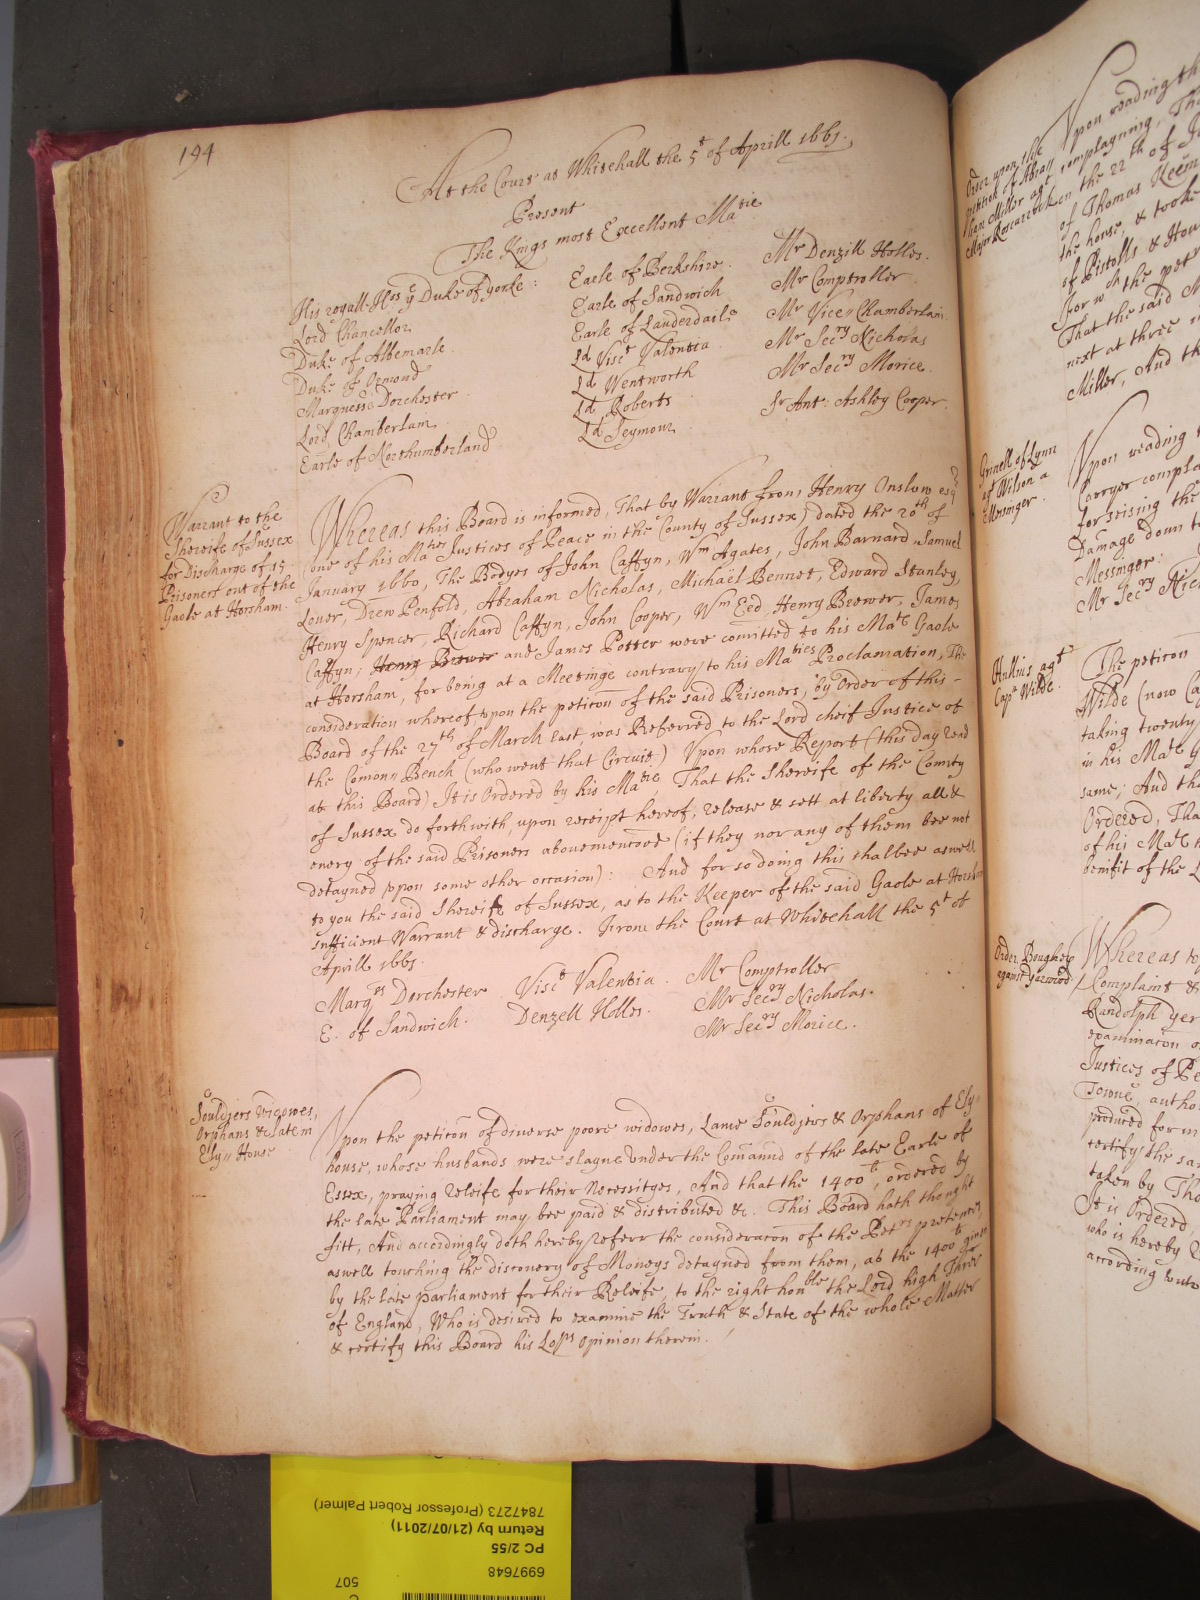 194
At the Court at Whitehall the 5t of Aprill 1661.
Present
The Kings most Excellent Matie
His royall Hss ye Duke of yorke:
Lord Chancellor
Duke of Albemarle
Duke of Ormond
Marquesse Dorchester
Lord Chamberlam
Earle of Northumberland
Earle of Berkshire.
Earle of Sandwich
Earle of Lauderdaile
Ld Visct Valentia
Ld Wentworth
Ld Roberts
Ld Seymour
Mr Denzill Holles.
Mr Comptroller.
Mr Vice Chamberlain.
Mr Secry Nicholas
Mr Secry Morice.
Sr Ant: Ashley Cooper.
Warrant to the
Shereife of Sussex
for Discharge of 15
Prisoners out of the
Gaole at Horsham.
Whereas this Board is informed, That by Warrant from Henry Onslow esqr
one of his Maties Justices of Peace in the County of Sussex, dated the 20th of
January 1660, The Bodyes of John Caffyn, Wm Agates, John Barnard Samuel
Lover, Drew Penfold, Abraham Nicholas, Michaël Bennet, Edward Stanley,
Henry Spencer, Richard Caffyn, John Cooper, Wm Eed, Henry Brewer, James
Caffyn, Henry Brewer and James Potter were comitted to his Mats Gaole
at Horsham, for being at a Meetinge contrary to his Maties Proclamation, The
consideration whereof upon the peticon of the said Prisoners, by Order of this -
Board of the 27th of March last, was Referred to the Lord cheif Justice of
the Comon Bench (who went that Circuit) Upon whose Report (this day read
at this Board) It is Ordered by his Matie, That the Shereife of the County
of Sussex do forthwith, upon receipt hereof, release & sett at liberty all &
every of the said Prisoners abouementoned (if they nor any of them bee not
detayned upon some other occasion): And for so doing this shalbee aswell
to you the said Shereife of Sussex, as to the Keeper of the said Gaole at Horsham
sufficient Warrant & discharge. From the Court at Whitehall the 5t of
Aprill 1661.
Marqs Dorchester
E. of Sandwich.
Visct Valentia
Denzell Holles.
Mr Comptroller
Mr Secry Nicholas.
Mr Secry Morice.
Souldjers widowes,
Orphans &c late in
Ely House
Upon the peticon of diverse poore widowes, Lame Souldjers & Orphans of Ely
house, whose husbands were slayne under the Comannd of the late Earle of
Essex, praying releife for their Necessityes, And that the 1400li, ordered by
the late Parliament may bee paid & distributed &c. This Board hath thought
fitt, And accordingly doth hereby referr the consideracon of the Petrs pretences,
aswell touching the discovery of Moneys detayned from them, as the 1400li given
by the late parliament for their Releife, to the right honble the Lord high Threr
of England, Who is desired to examine the Truth & State of the whole Matter
& certify this Board his Lopps Opinion therein.
Order upon the
petition of
Miller agt
Major
Upon reading
complayning, Tha
on the 22th of Ja
of Thomas
the house, & tooke
of Pistolls &
for wch the pet
That the said M
next at three
Miller, And th
of Lynn
agt Wilson a
Messinger.
Upon reading
Carryer compla
for seising the
Damage down t
Messinger.
Mr Secry Nich
agt
Capt Wilde.
The peticon
Wilde (now Ca
taking twenty
in his Mats G
same; And tha
Ordered, Tha
of his Mats
benifit of the L
Order
against
Whereas
Complaint &
Randolph
examinacon
Justices of Pe
Towne, autho
produced
certify the sa
taken by Tho
It is Ordered
who is hereby
according
507
6997648
PC 2/55
Return by (21/07/2011)
7847273 (Professor Robert Palmer)